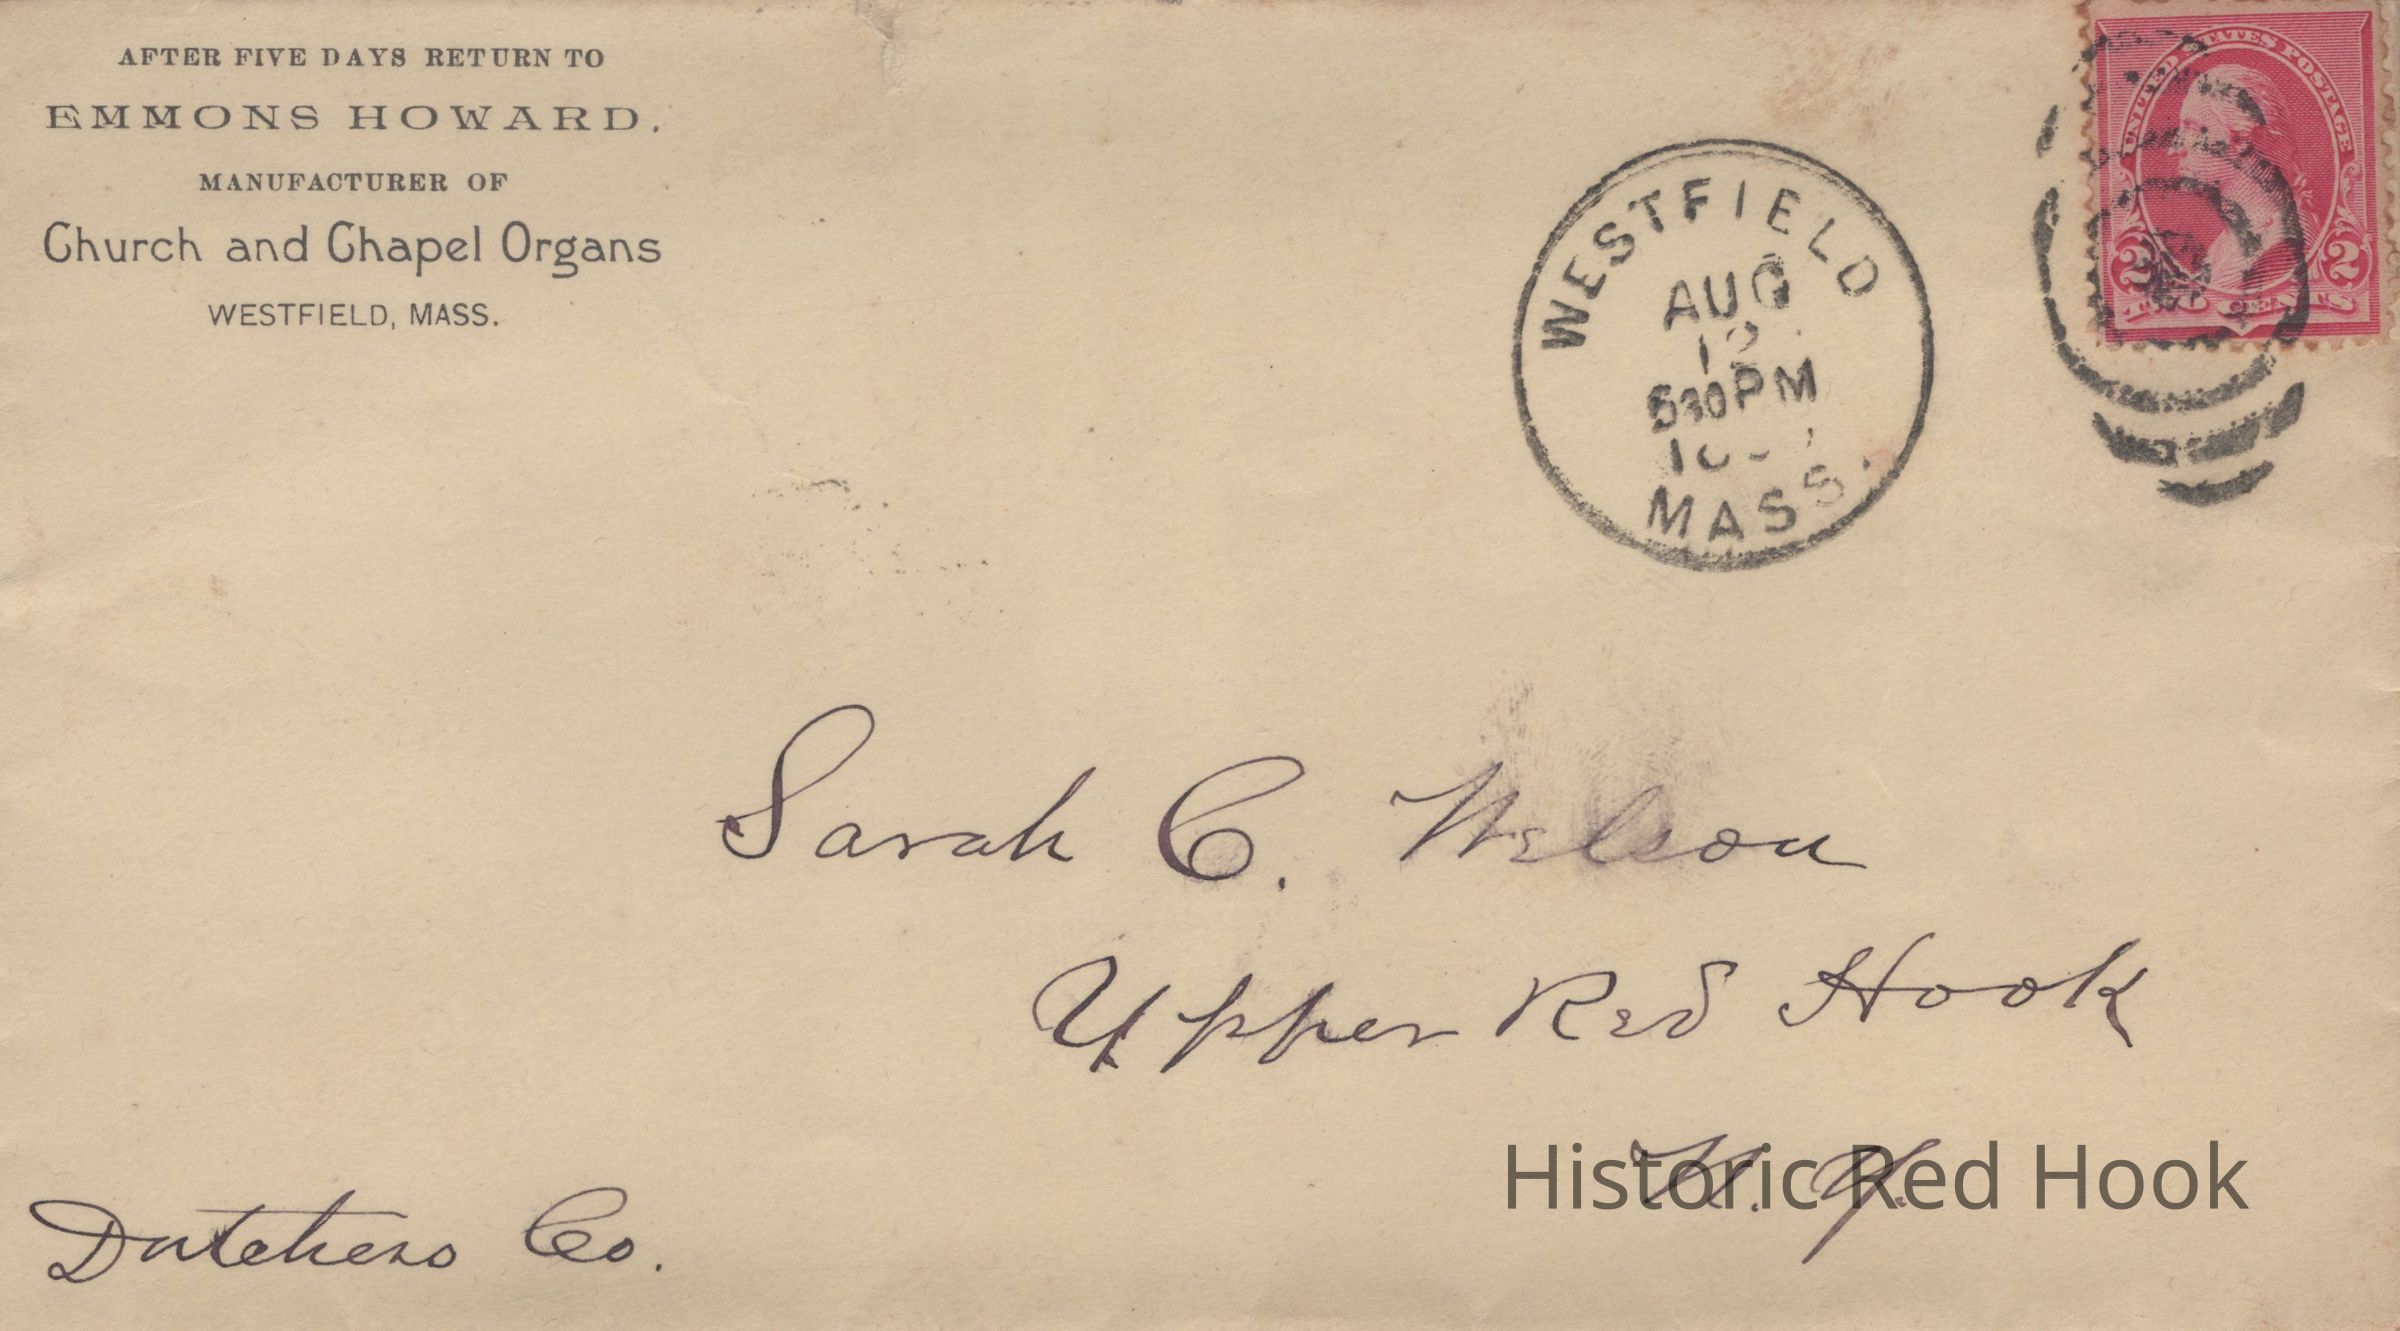 AFTER FIVE DAYS RETURN TO
EMMONS HOWARD,
MANUFACTURER OF
Church and Chapel Organs
WESTFIELD, MASS.
UNITED STATES POSTAGE
2 2
WESTFIELD
AUG
12
530PM
MASS.
Sarah C. Nelson
Upper Red Hook
N. Y.
Dutchess Co.
Historic Red Hook